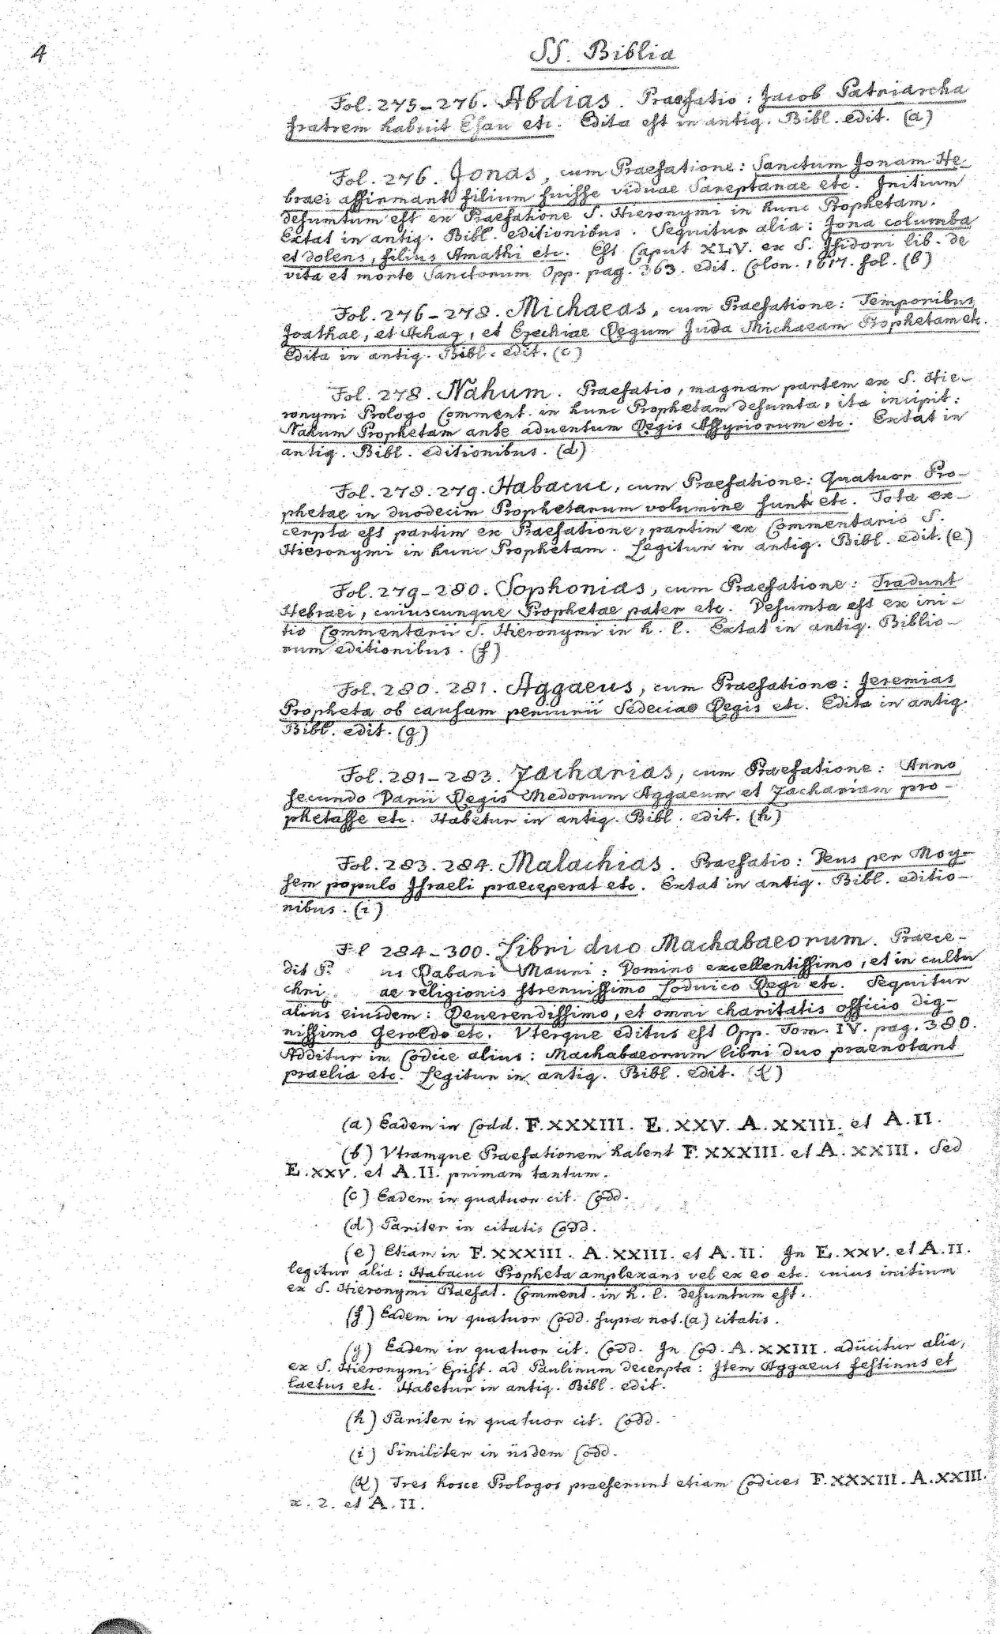 4
SS. Biblia
Fol. 275-276. Abdias. Praefatio: Jacob Patriarcha
fratrem habuit Esau etc. Edita est in antiq. Bibl. edit. (a)
Fol. 276. Jonas, cum Praefatione: Sanctum Jonam He-
braei affirmant filium fuisse viduae Sareptanae etc. Initium
desumtum est ex Praefatione S. Hieronymi in hunc Prophetam.
Extat in antiq. Bibl. editionibus. Sequitur alia: Jona columba
et dolens, filius Amathi etc. Est Caput XLV. ex S. Isidori lib. de
vita et morte Sanctorum Opp. pag. 363. edit. Colon. 1617. fol. (b)
Fol. 276-278. Michaeas, cum Praefatione: Temporibus
Joathae, et Achaz, et Ezechiae Regum Juda Michaeam Prophetam etc.
Edita in antiq. Bibl. edit. (c)
Fol. 278. Nahum. Praefatio, magnam partem ex S. Hie-
ronymi Prologo Comment. in hunc Prophetam desumta, ita incipit:
Nahum Prophetam ante adventum Regis Assyriorum etc. Extat in
antiq. Bibl. editionibus. (d)
Fol. 278. 279. Habacuc, cum Praefatione: Quatuor Pro-
phetae in duodecim Prophetarum volumine sunt etc. Tota ex-
cerpta est partim ex Praefatione, partim ex Commentario S.
Hieronymi in hunc Prophetam. Legitur in antiq. Bibl. edit. (e)
Fol. 279-280. Sophonias, cum Praefatione: Tradunt
Hebraei, cuiuscunque Prophetae pater etc. Desumta est ex ini-
tio Commentarii S. Hieronymi in h. l. Extat in antiq. Biblio-
rum editionibus. (f)
Fol. 280. 281. Aggaeus, cum Praefatione: Jeremias
Propheta ob causam periurii Sedeciae Regis etc. Edita in antiq.
Bibl. edit. (g)
Fol. 281-283. Zacharias, cum Praefatione: Anno
secundo Darii Regis Medorum Aggaeum et Zachariam pro-
phetasse etc. Habetur in antiq. Bibl. edit. (h)
Fol. 283. 284. Malachias. Praefatio: Deus per Moy-
sem populo Israeli praeceperat etc. Extat in antiq. Bibl. editio-
nibus. (i)
F l 284-300. Libri duo Machabaeorum. Praece-
dit P. us Rabani Mauri: Domino excellentissimo, et in cultu
chri ae religionis strenuissimo Loduico Regi etc. Sequitur
alius eiusdem: Reverendissimo, et omni charitatis officio dig-
nissimo Geroldo etc. Vterque editus est Opp. Tom. IV. pag. 380.
Additur in Codice alius: Machabaeorum libri duo praenotant
praelia etc. Legitur in antiq. Bibl. edit. (K)
(a) Eadem in Codd. F. XXXIII. E. XXV. A. XXIII. et A. II.
(b) Vtramque Praefationem habent F. XXXIII. et A. XXIII. Sed
E. XXV. et A. II. primam tantum.
(c) Eadem in quatuor cit. Codd.
(d) Pariter in citatis Codd.
(e) Etiam in F. XXXIII. A. XXIII. et A. II. In E. XXV. et A. II.
legitur alia: Habacuc Propheta amplexans vel ex eo etc. cuius initium
ex S. Hieronymi Praefat. Comment. in h. l. desumtum est.
(f) Eadem in quatuor Codd. supra not. (a) citatis.
(g) Eadem in quatuor cit. Codd. In Cod. A. XXIII. adiicitur alia,
ex S. Hieronymi Epist. ad Paulinum decerpta: Item Aggaeus festinus et
laetus etc. Habetur in antiq. Bibl. edit.
(h) Pariter in quatuor cit. Codd.
(i) Similiter in iisdem Codd.
(K) Tres hosce Prologos praeferunt etiam Codices F. XXXIII. A. XXIII.
x. 2. et A. II.